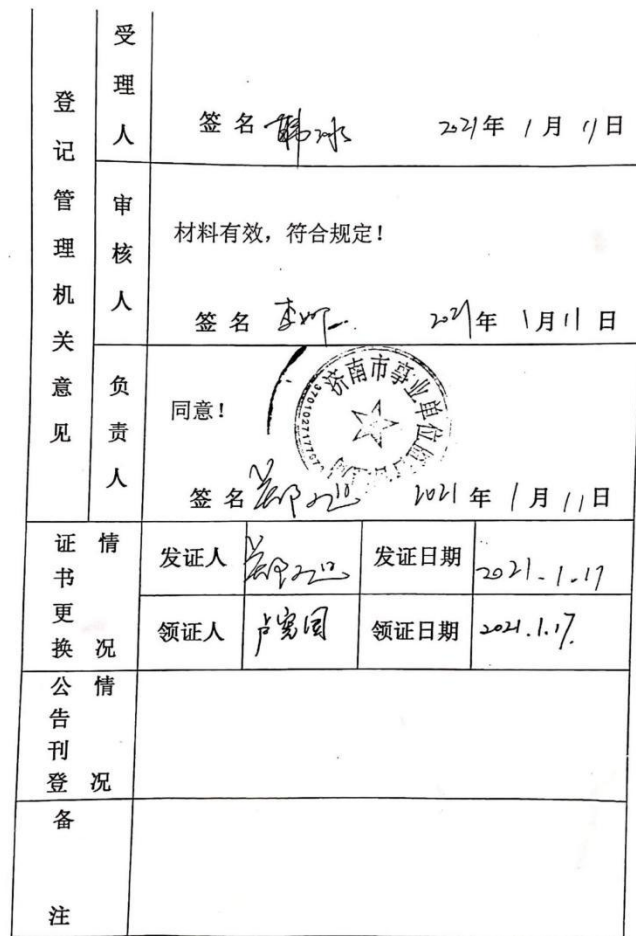 登记管理机关意见
受理人
签名 韩冰 2021年1月11日
审核人
材料有效，符合规定！
签名 2021年1月11日
负责人
同意！
济南市事业单位
3701027177
签名 2021年1月11日
证书更换情况
发证人 发证日期 2021.1.17
领证人 卢宪国 领证日期 2021.1.17.
公告刊登情况
备注